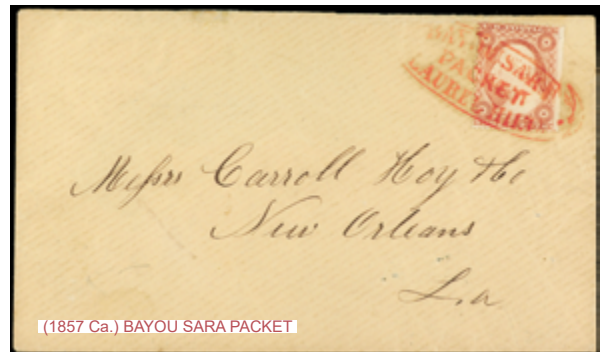 BAYOU SARA
PACKET
LAUREL HILL.
Messrs Carroll Hoy & Co
New Orleans
La
(1857 Ca.) BAYOU SARA PACKET